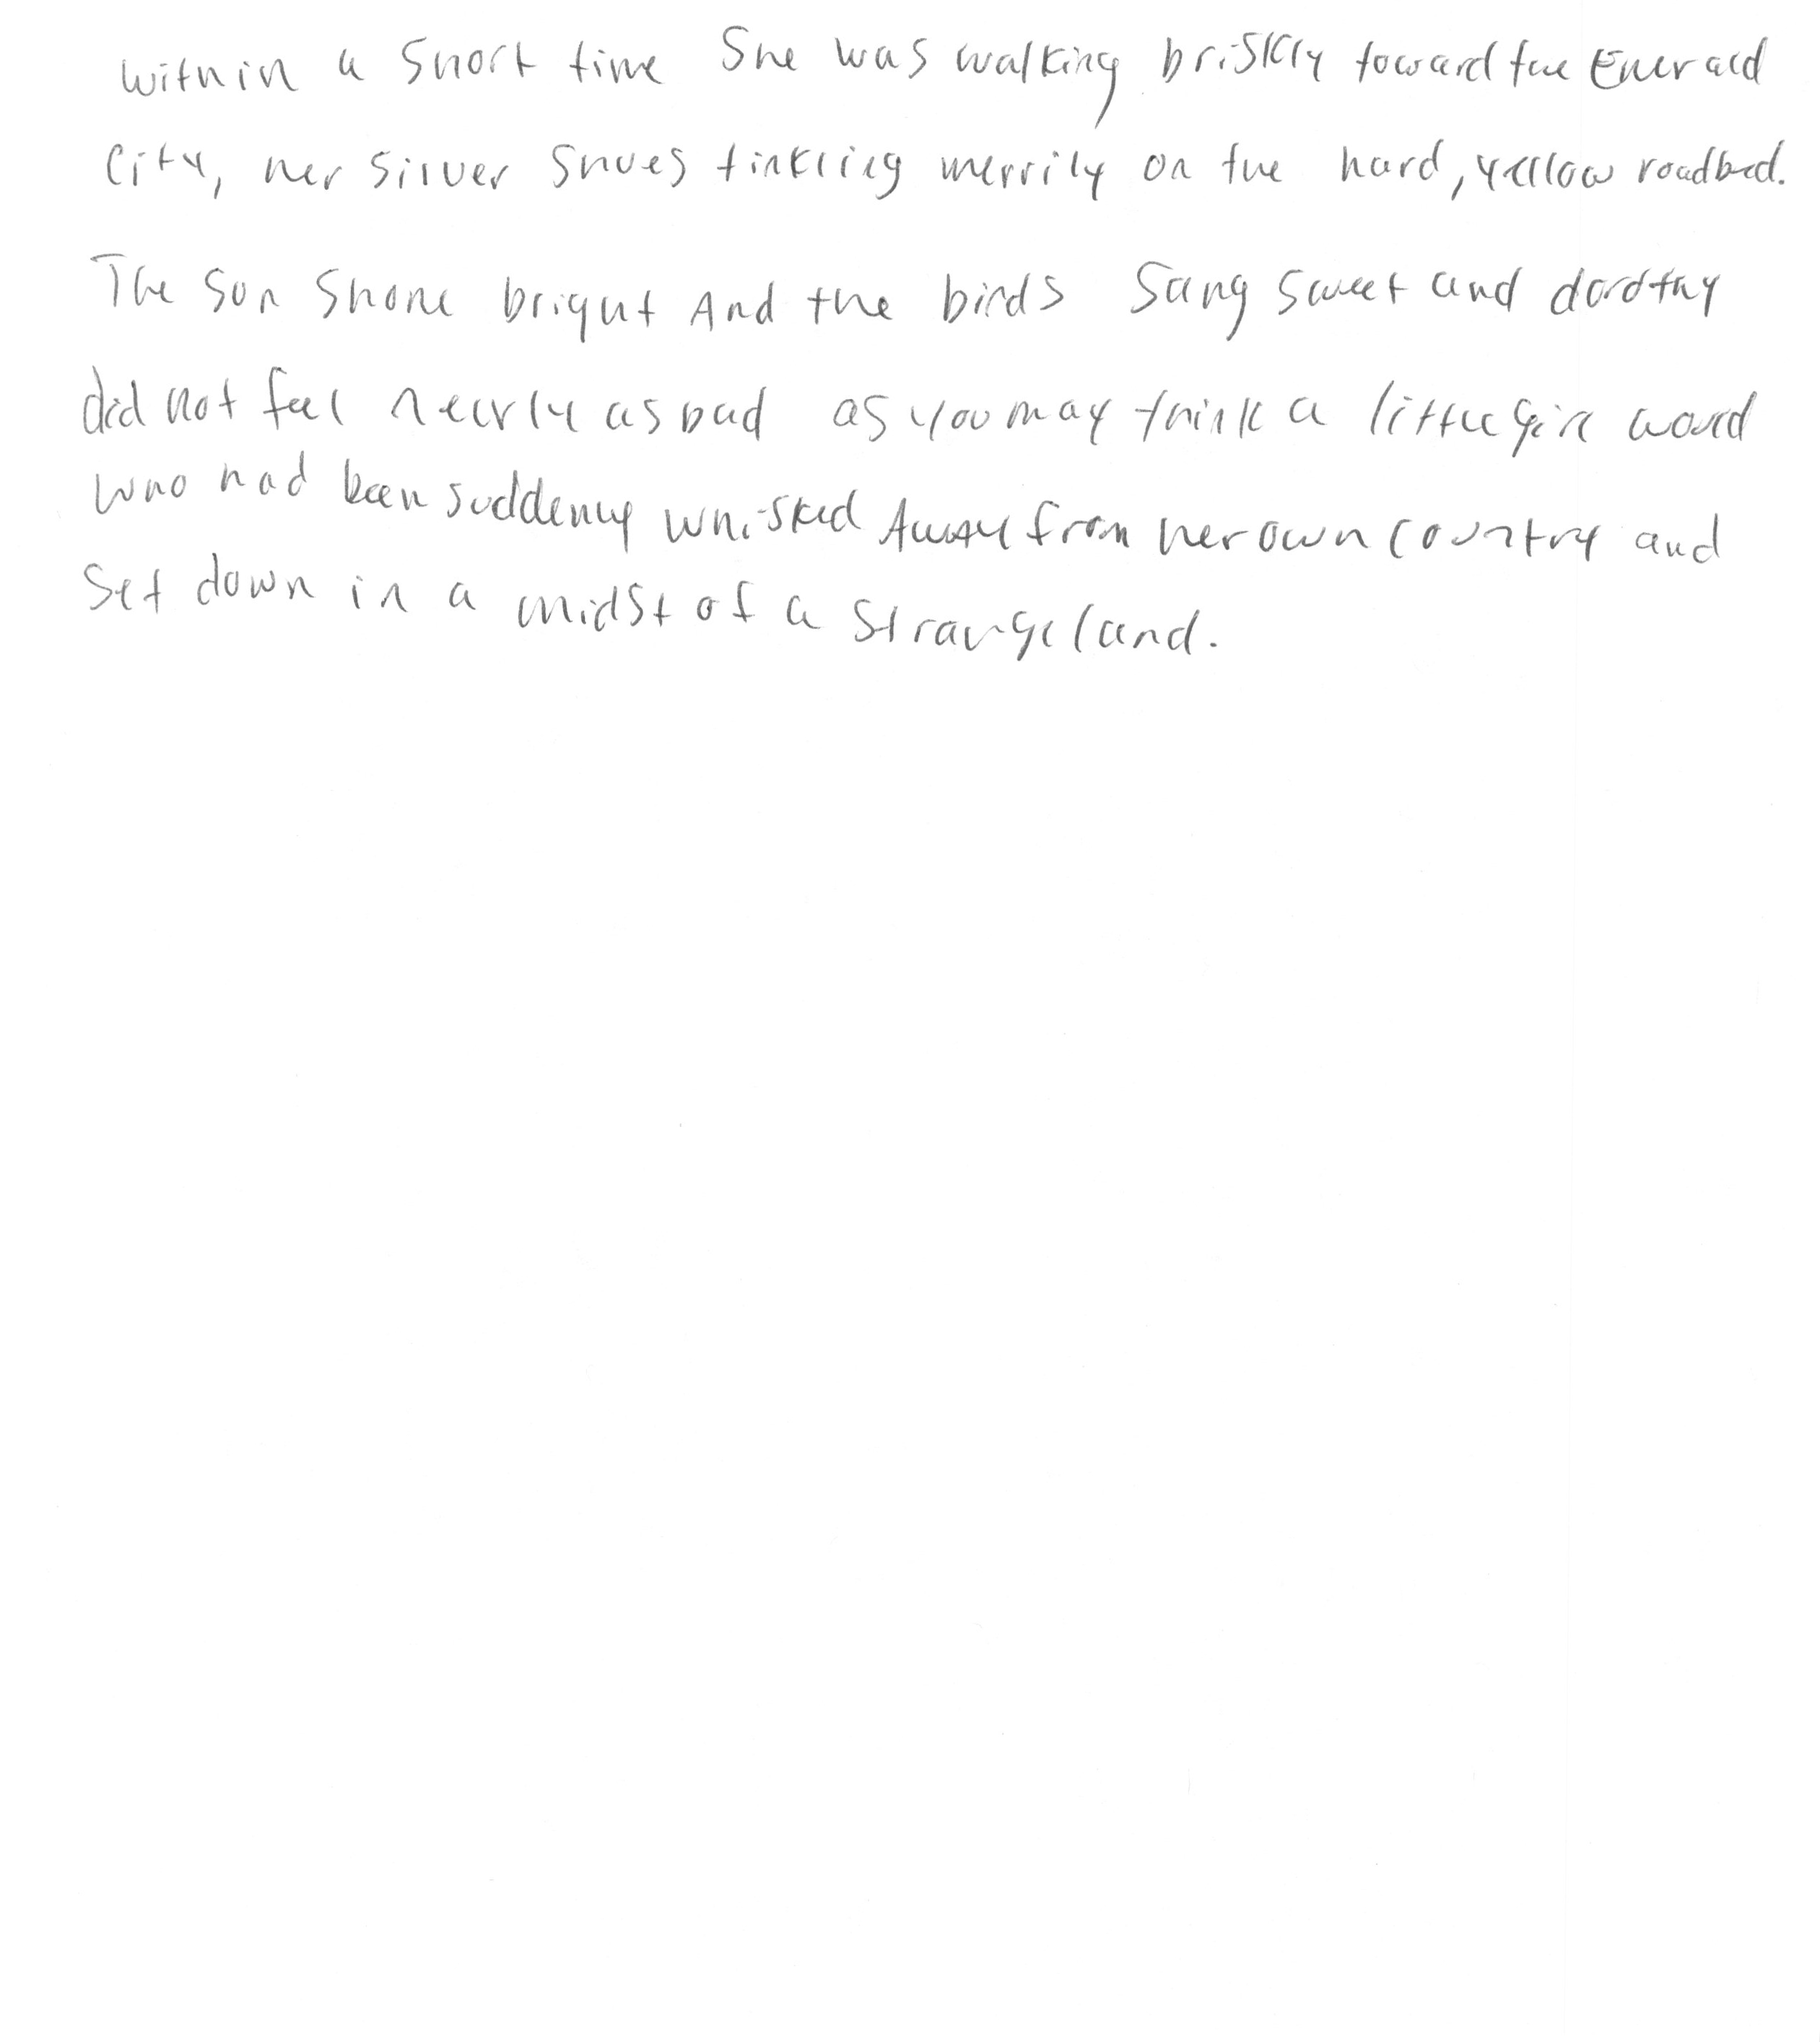 within a short time She was walking briskly toward the Emerald
City, her silver shoes tinkling merrily on the hard, yellow roadbed.
The sun shone bright And the birds sang sweet and dorothy
did not feel nearly as bad as you may think a little girl would
who had been suddenly whisked Away from her own country and
set down in a midst of a strange land.